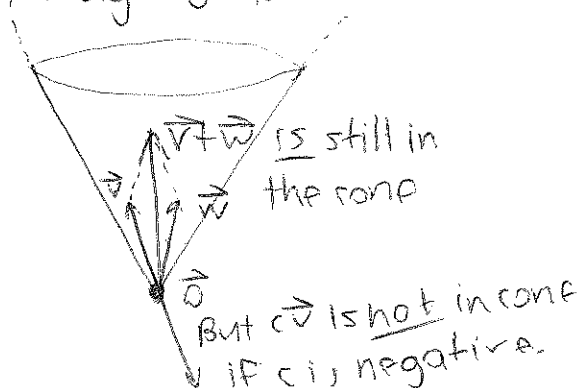 v⃗+w⃗ is still in
v⃗
w⃗
the cone
0⃗
But cv⃗ is not in cone
if c is negative.